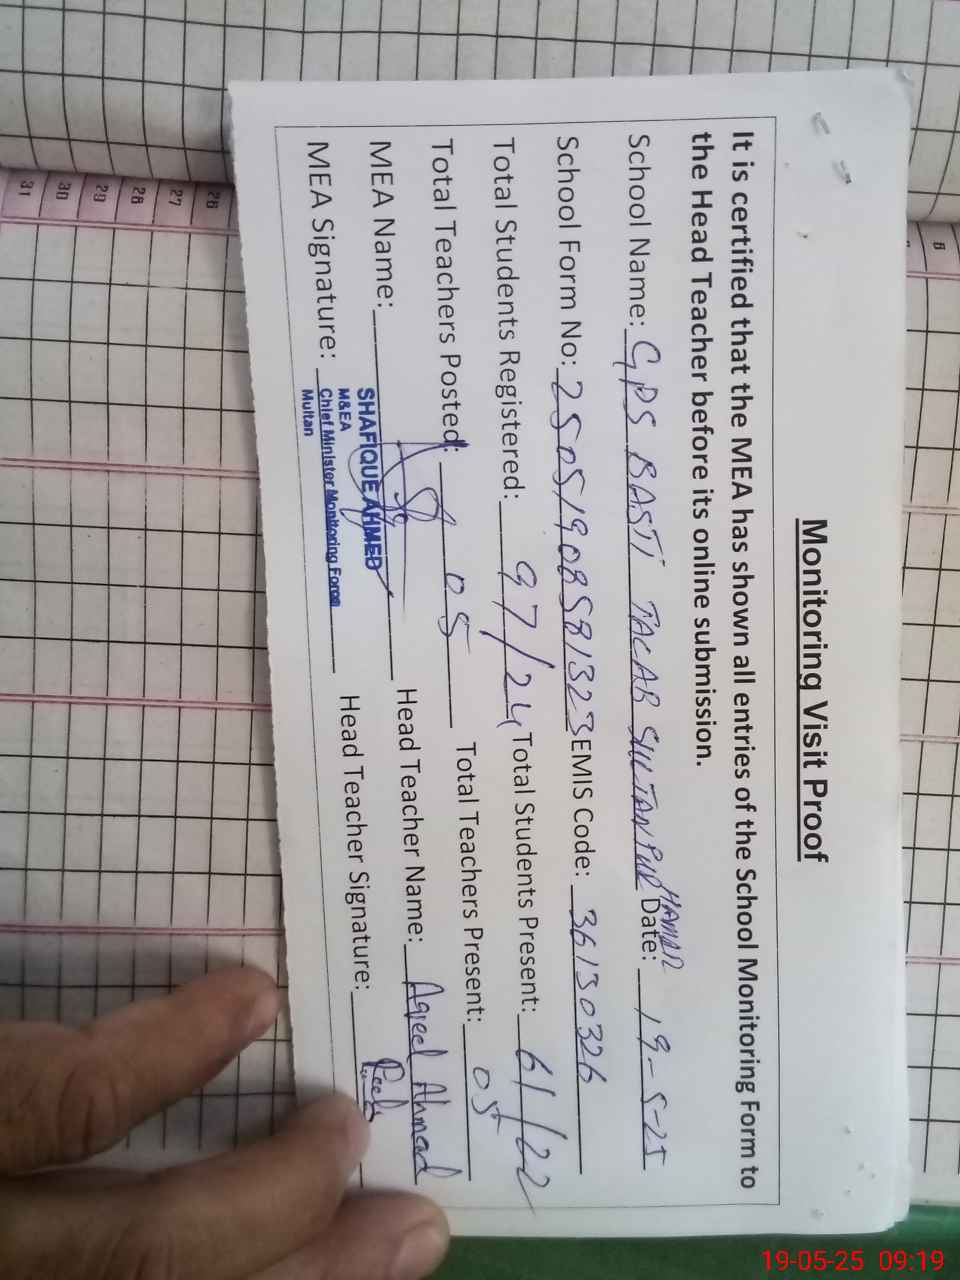 Monitoring Visit Proof
It is certified that the MEA has shown all entries of the School Monitoring Form to
the Head Teacher before its online submission.
School Name: GPS BASTI TAGAR SULTAN PUR HAMAR Date: 19-5-25
School Form No: 25051908581323 EMIS Code: 36130326
Total Students Registered: 97/24 Total Students Present: 61/22
Total Teachers Posted: 05 Total Teachers Present: 05
MEA Name: SHAFIQUE AHMED Head Teacher Name: Aqeel Ahmad
M&EA
MEA Signature: Chief Minister Monitoring Force Head Teacher Signature:
Multan
26
27
28
29
30
31
6
19-05-25 09:19